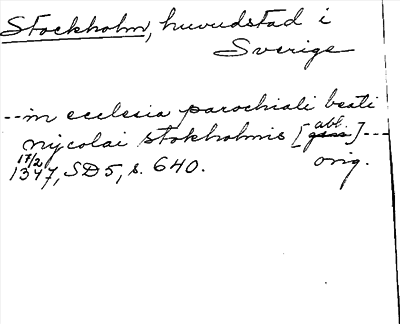 Stockholm, huvudstad i
Sverige
--in ecclesia parochiali beati
nycolai stokholmis [abl.]---
17/2 1347, SD5, s. 640. orig.